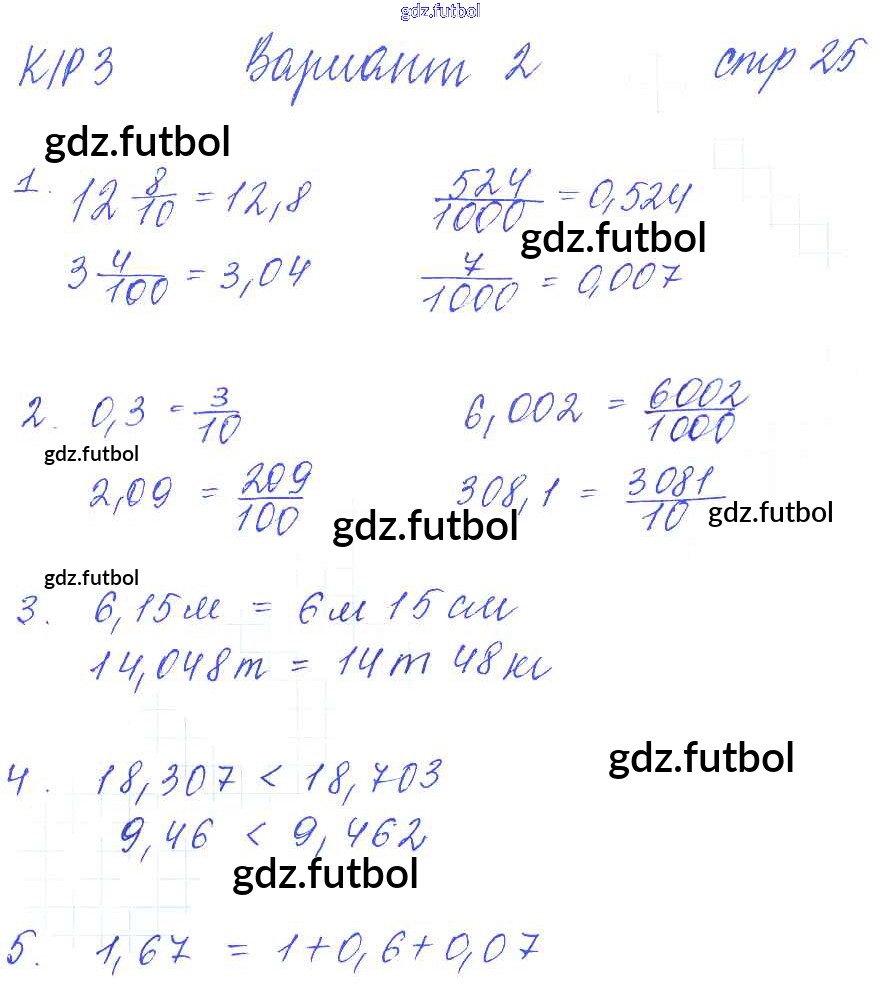 gdz.futbol
К/Р 3 Вариант 2 стр 25
gdz.futbol
1. 12 8/10 = 12,8 524/1000 = 0,524
gdz.futbol
3 4/100 = 3,04 7/1000 = 0,007
2. 0,3 = 3/10 6,002 = 6002/1000
gdz.futbol
2,09 = 209/100 308,1 = 3081/10
gdz.futbol gdz.futbol
gdz.futbol
3. 6,15м = 6м 15см
14,048т = 14т 48кг
gdz.futbol
4. 18,307 < 18,703
9,46 < 9,462
gdz.futbol
5. 1,67 = 1+0,6+0,07